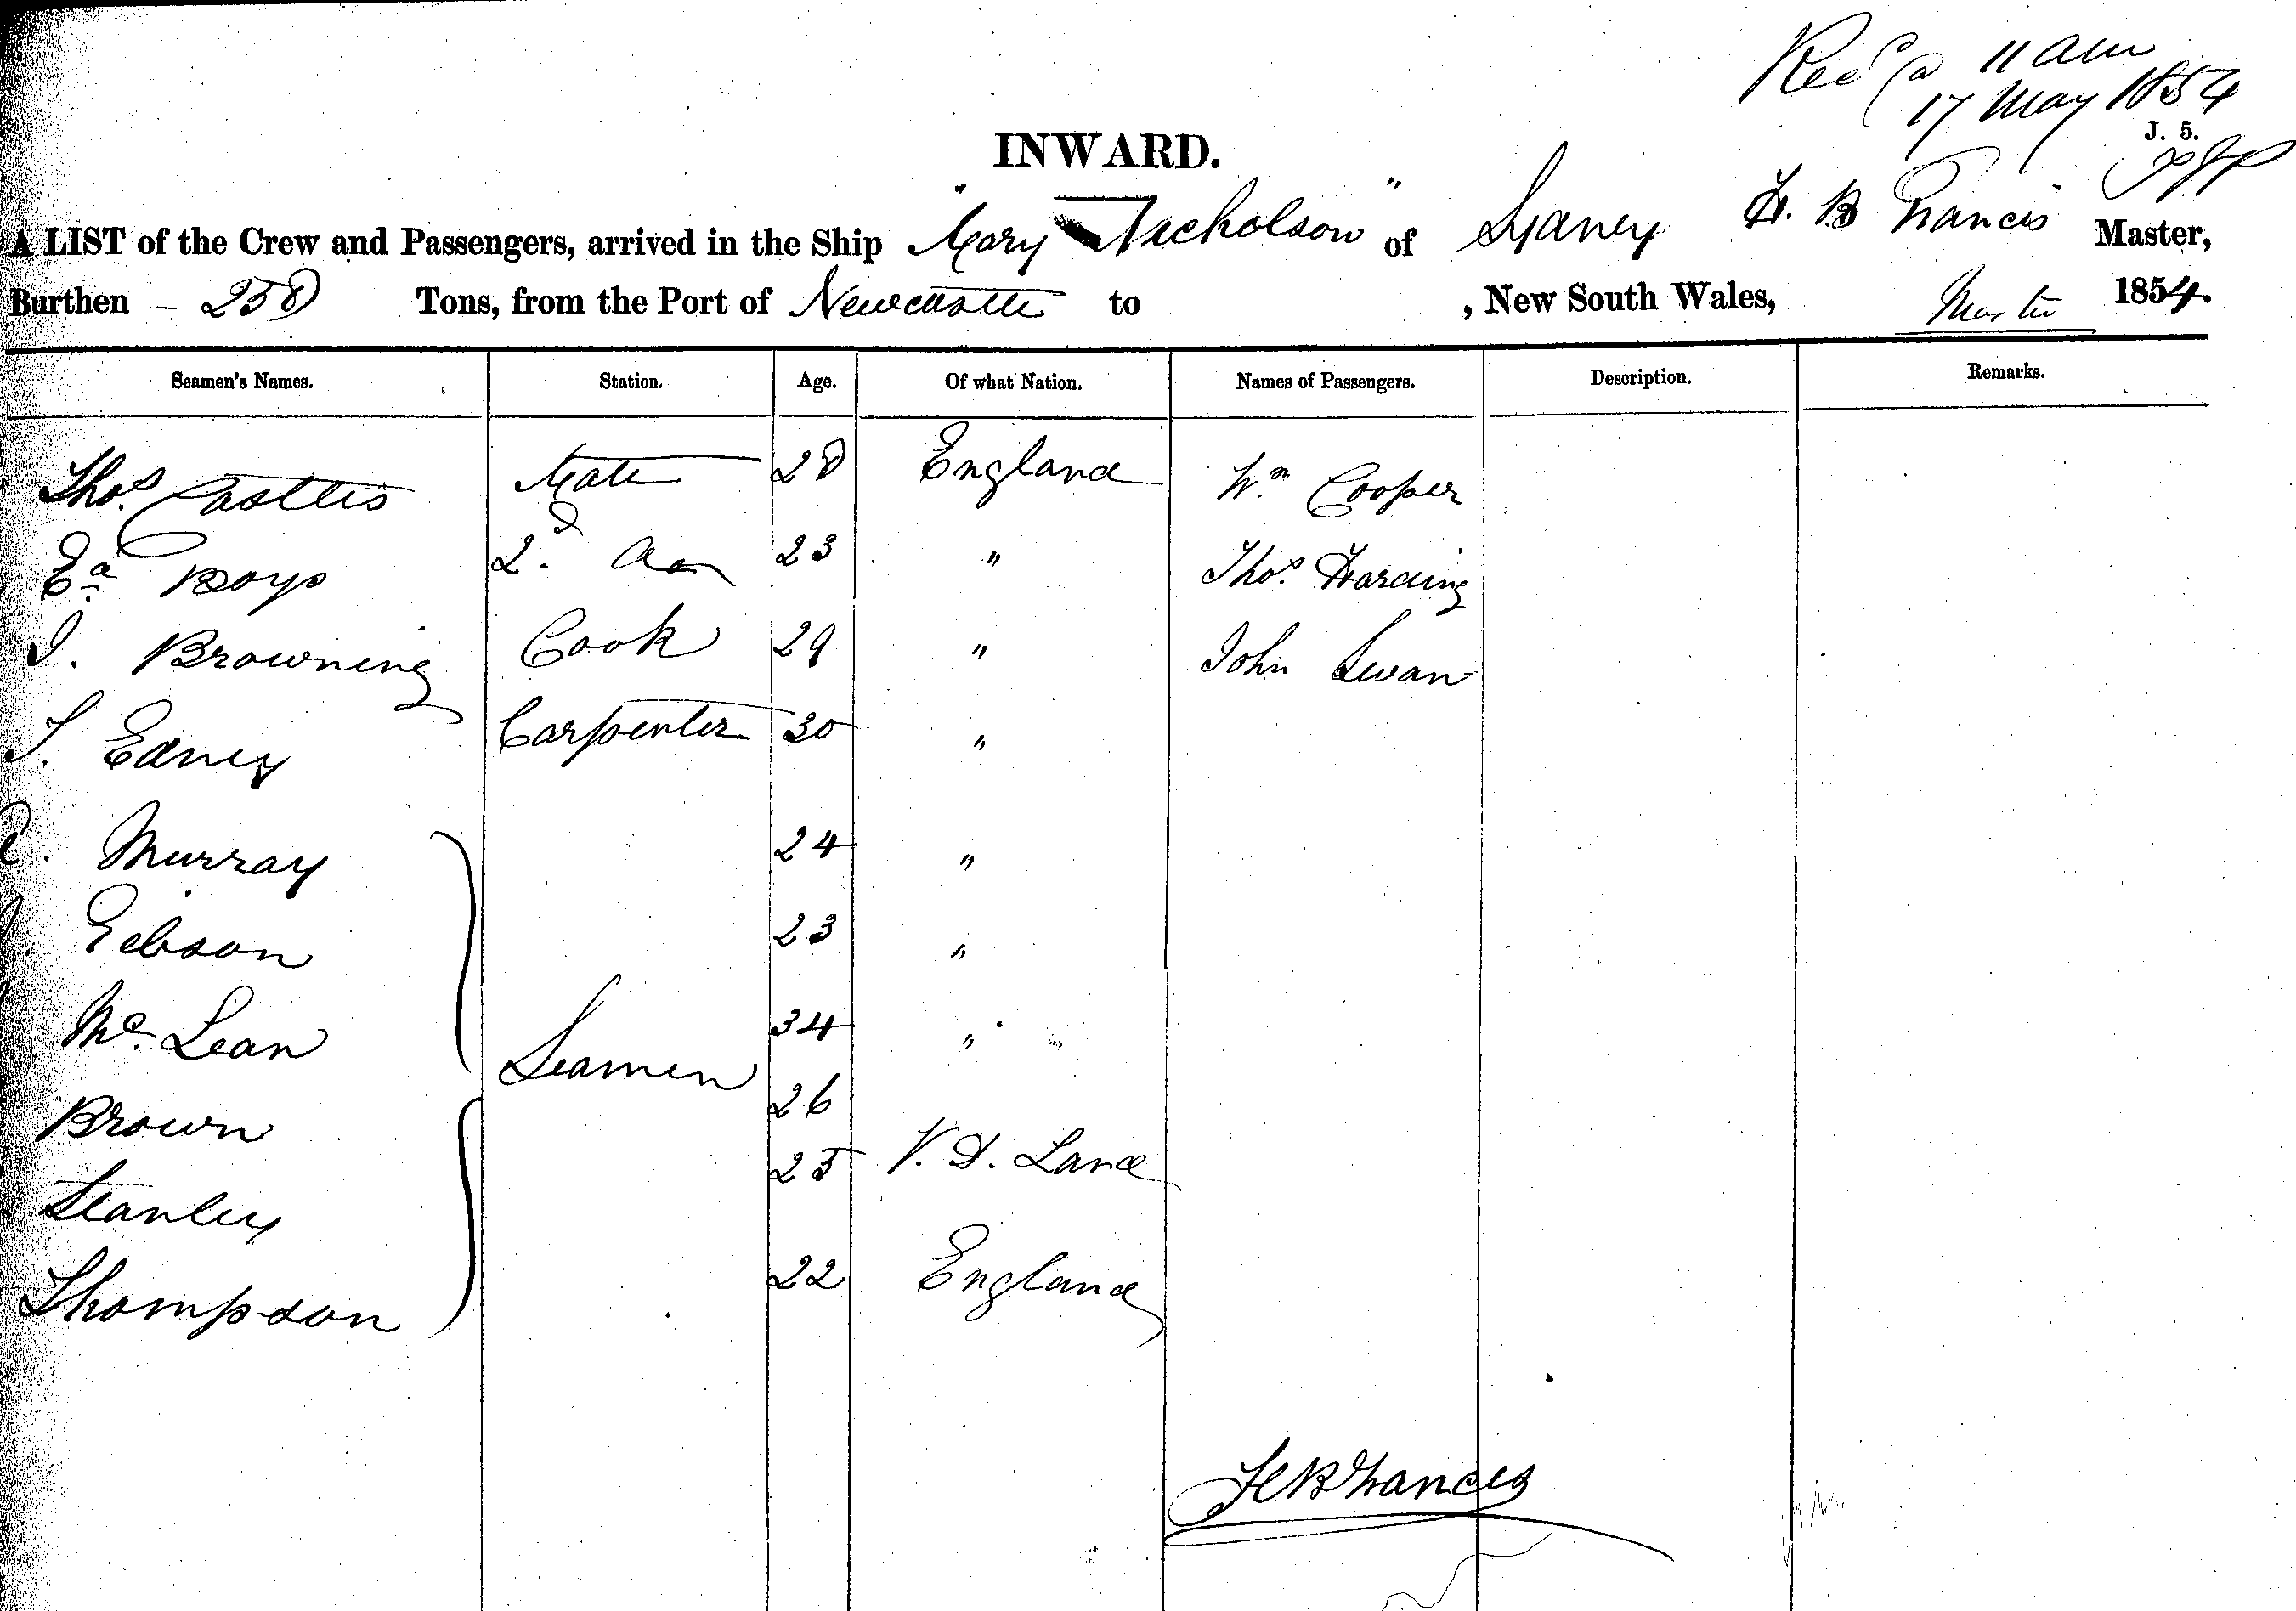 Recd @ 11 am
17 May 1854
J. 5.
INWARD.
A LIST of the Crew and Passengers, arrived in the Ship "Mary Nicholson" of Sydney H. B Francis Master,
Burthen — 258 Tons, from the Port of Newcastle to , New South Wales, 1854.
Seamen's Names. Station. Age. Of what Nation. Names of Passengers. Description. Remarks.
Thos. Castles Mate 28 England Wm Cooper
Ed Boys 2d Do 23 " Thos. Harding
J. Browning Cook 29 " John Swan
T. Edney Carpenter 30 "
Murray 24 "
Gibson 23 "
Mc Lean 34 "
Seamen
Brown 26
Stanley 25 V. D. Land
Thompson 22 England
H B Francis